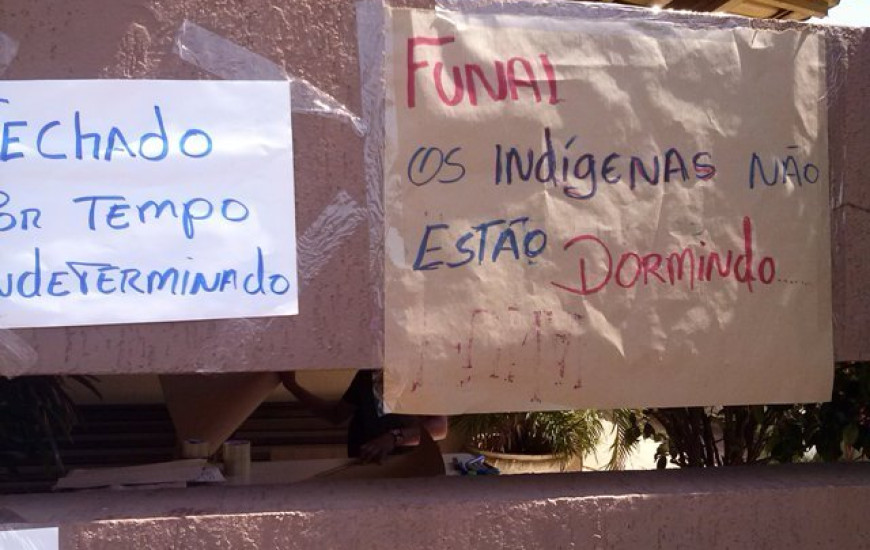 FECHADO
POR TEMPO
INDETERMINADO
FUNAI
OS INDÍGENAS NÃO
ESTÃO DORMINDO......